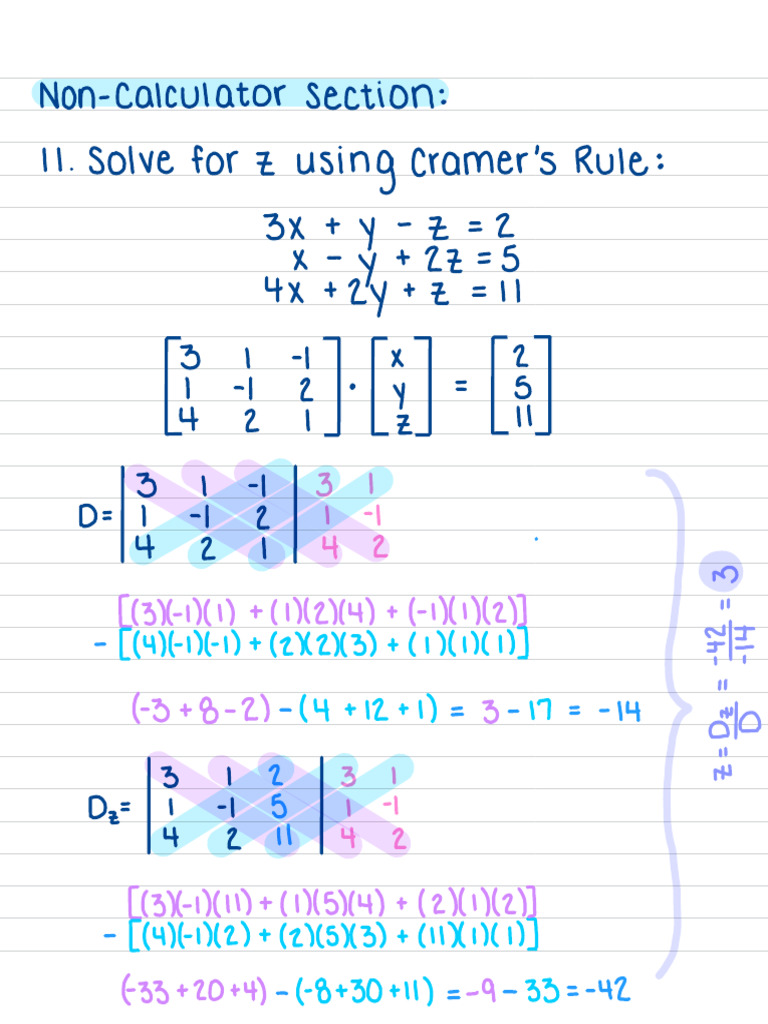 Non-Calculator Section:
11. Solve for z using Cramer's Rule:
3x + y - z = 2
x - y + 2z = 5
4x + 2y + z = 11
[3 1 -1] [x] [2]
[1 -1 2] · [y] = [5]
[4 2 1] [z] [11]
|3 1 -1| 3 1
D= |1 -1 2| 1 -1
|4 2 1| 4 2
[(3)(-1)(1) + (1)(2)(4) + (-1)(1)(2)]
- [(4)(-1)(-1) + (2)(2)(3) + (1)(1)(1)]
(-3 + 8 - 2) - (4 + 12 + 1) = 3 - 17 = -14
|3 1 2| 3 1
Dz= |1 -1 5| 1 -1
|4 2 11| 4 2
[(3)(-1)(11) + (1)(5)(4) + (2)(1)(2)]
- [(4)(-1)(2) + (2)(5)(3) + (11)(1)(1)]
(-33 + 20 + 4) - (-8 + 30 + 11) = -9 - 33 = -42
z = Dz/D = -42/-14 = 3